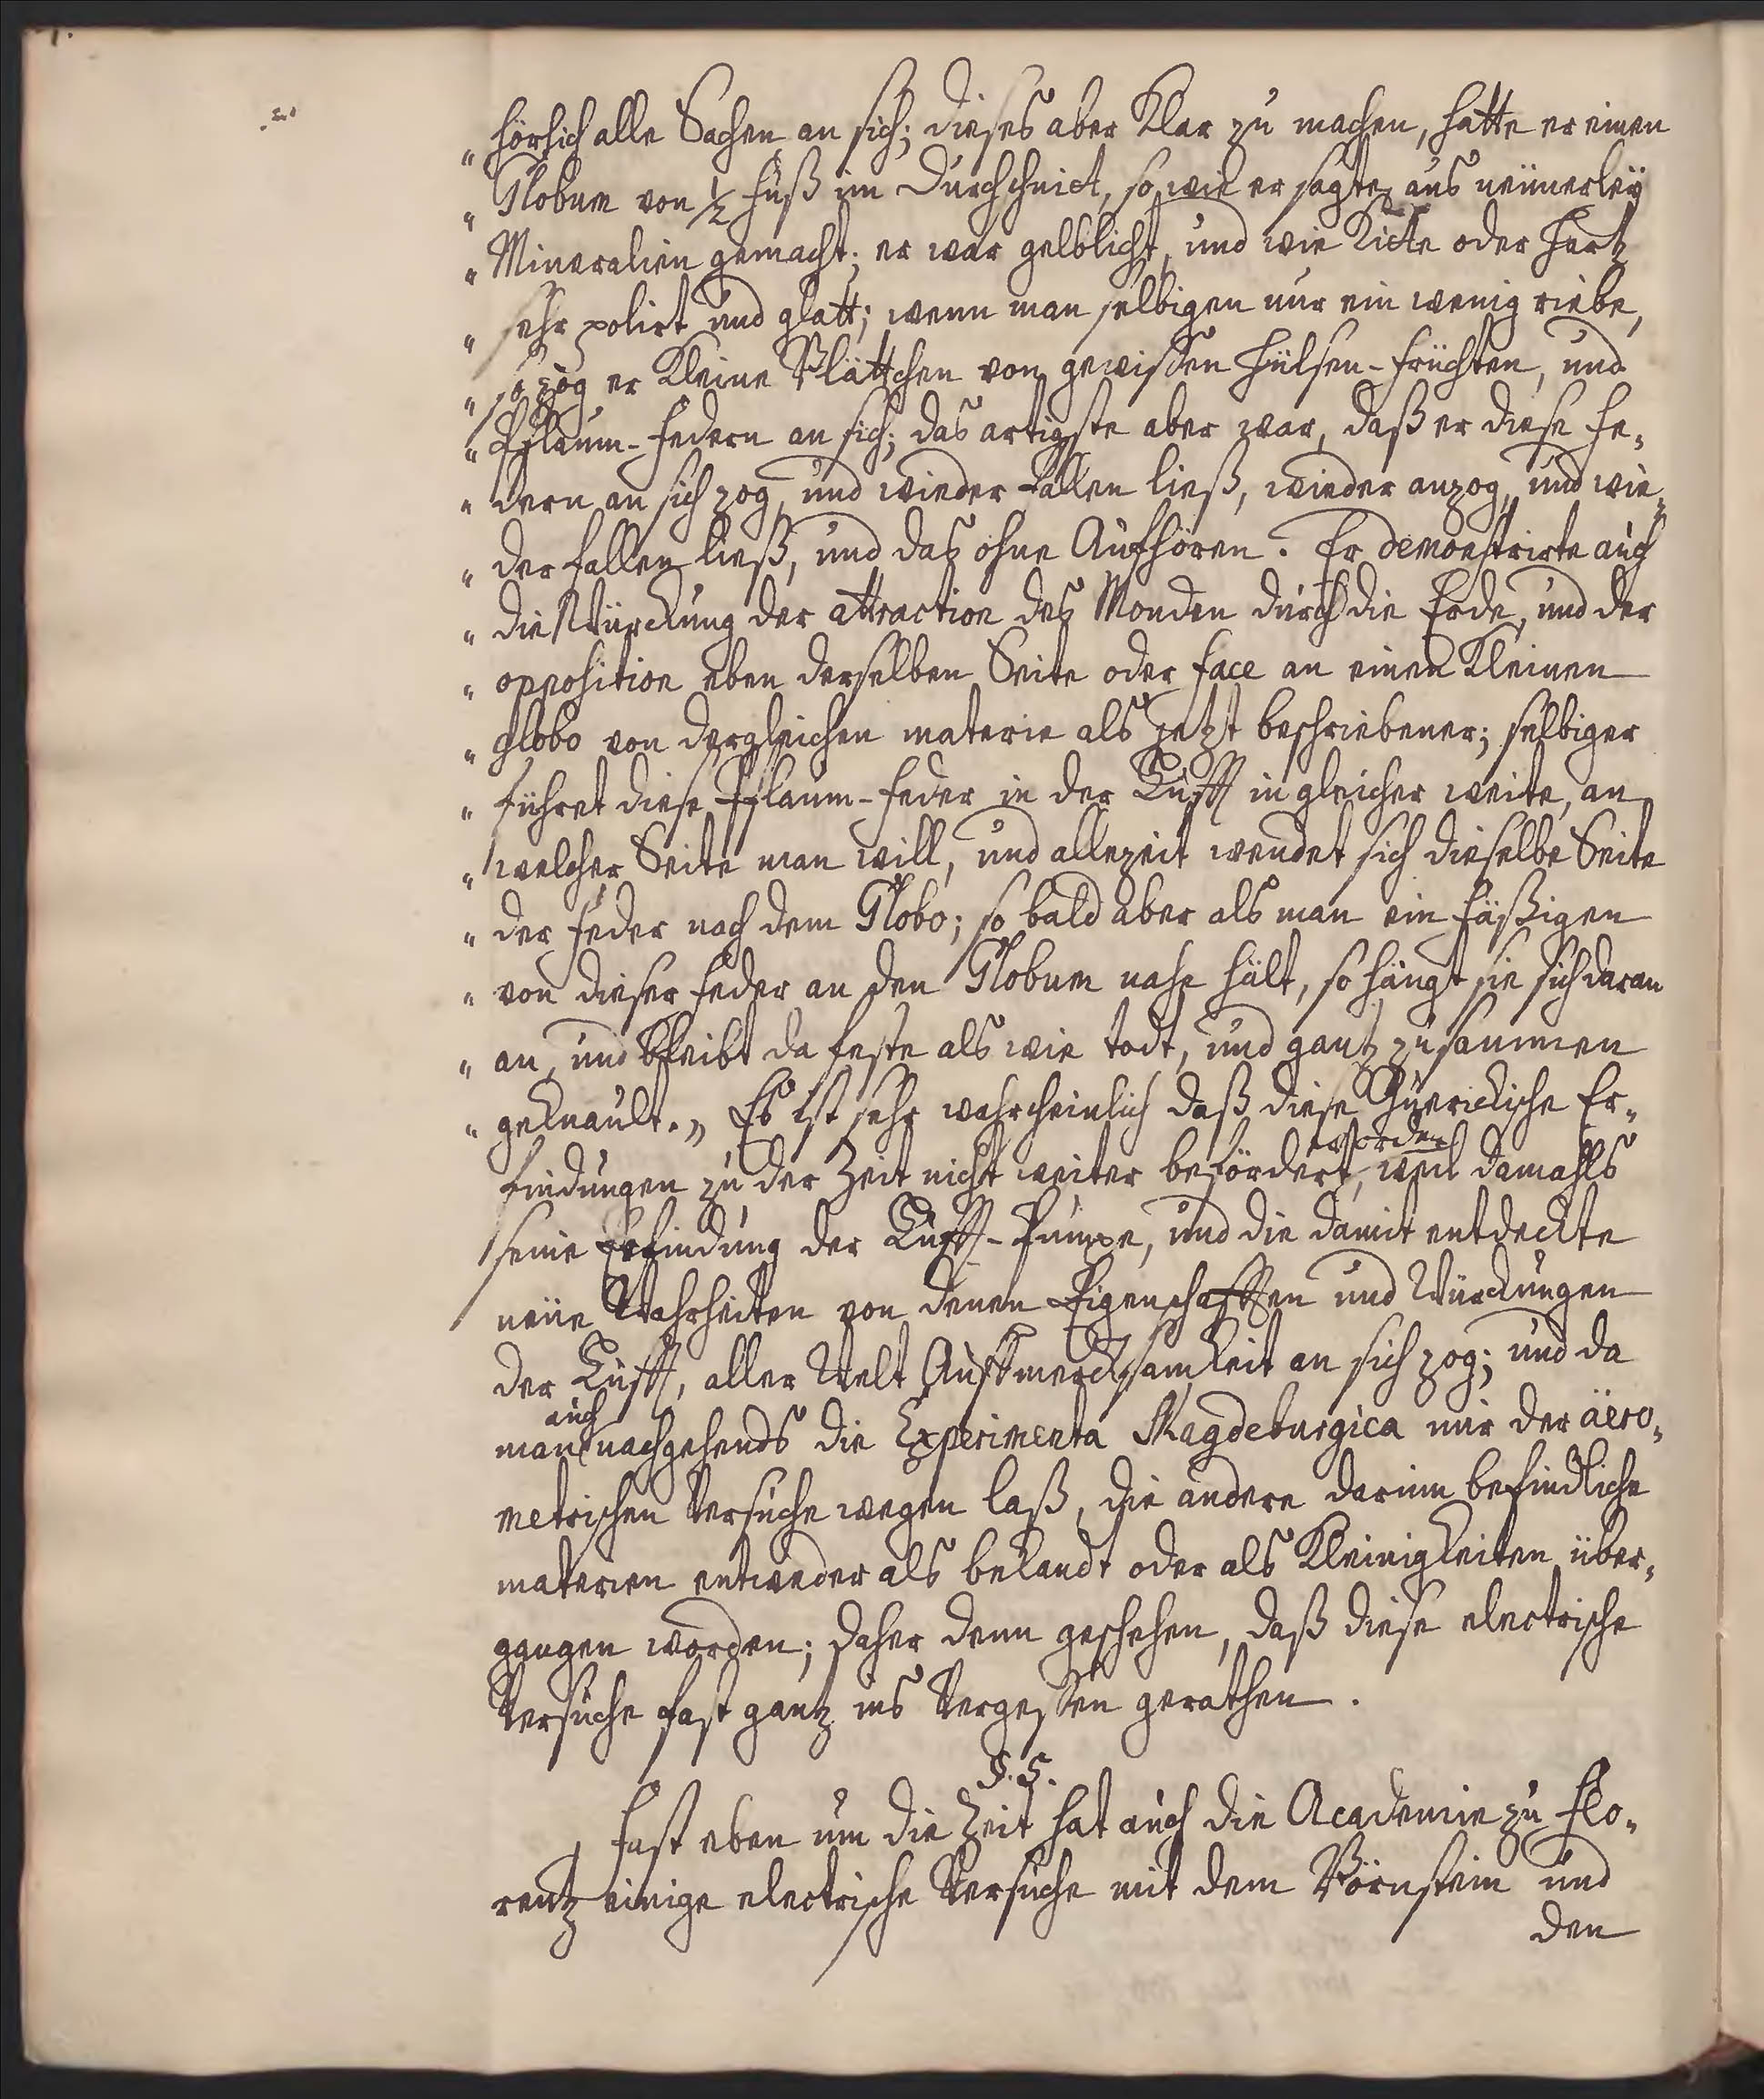 „ hörlich alle Sachen an sich; dieses aber klar zu machen, hatte er einen
„ Globum von ½ Fuß im Durchschnitt, so, wie er sagte, aus neunerleÿ
„ Mineralien gemacht; er war gelblicht, und wie Kitte oder Hartz
„ sehr polirt und glatt; wenn man selbigen nur ein wenig riebe,
„ so zog er kleine Blättchen von gewissen Hülsen-Früchten, und
„ Pflaum-Federn an sich; das artigste aber war, daß er diese Fe„
„ dern an sich zog, und wieder fallen ließ, wieder anzog, und wie„
„ der fallen ließ, und das ohne Aufhören. Er demonstrirte auch
„ die Würckung der attraction des Monden durch die Erde, und der
„ opposition eben derselben Seite oder face an einen kleinen
„ globo von dergleichen materie als jetzt beschriebener; selbiger
„ führet diese Pflaum-Feder in der Lufft in gleicher weite, an
„ welcher Seite man will, und allezeit wendet sich dieselbe Seite
„ der Feder nach dem Globo; so bald aber als man ein Fäßigen
„ von dieser Feder an den Globum nahe hält, so hängt sie sich daran
„ an, und bleibt da feste als wie todt, und gantz zusammen
„ geknault.„ Es ist sehr wahrscheinlich daß diese Guerickische Er„
findungen zu der Zeit nicht weiter befördert worden, weil damahls
seine Erfindung der Lufft-Pumpe, und die damit entdeckte
neüe Wahrheiten von denen Eigenschafften und Würckungen
der Lufft, aller Welt Auffmercksamkeit an sich zog; und da
man auch nachgehends die Experimenta Magdeburgica nur der äero„
metrischen Versuche wegen laß, die andere darinn befindliche
materien entweder als bekandt oder als Kleinigkeiten über„
gangen worden; daher denn geschehen, daß diese electrische
Versuche fast gantz ins Vergessen gerathen.
§. 5.
Fast eben um die Zeit hat auch die Academie zu Flo„
rentz einige electrische Versuche mit dem Börnstein und
den